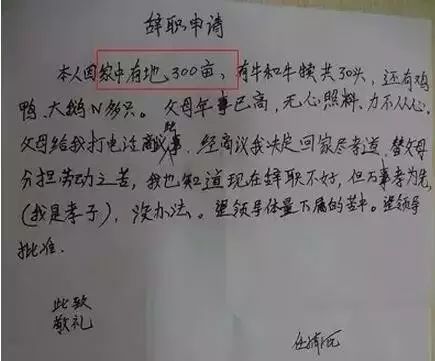 辞职申请
本人因家中有地300亩，有牛和牛犊共30头，还有鸡
鸭、大鹅N多只。父母年事已高，无心照料，力不从心。
父母给我打电话商议此事，经商议我决定回家尽孝道，替父母
分担劳动之苦，我也知道现在辞职不好，但万事孝为先，
(我是孝子)，没办法。望领导体量下属的苦中。望领导
批准.
此致
敬礼